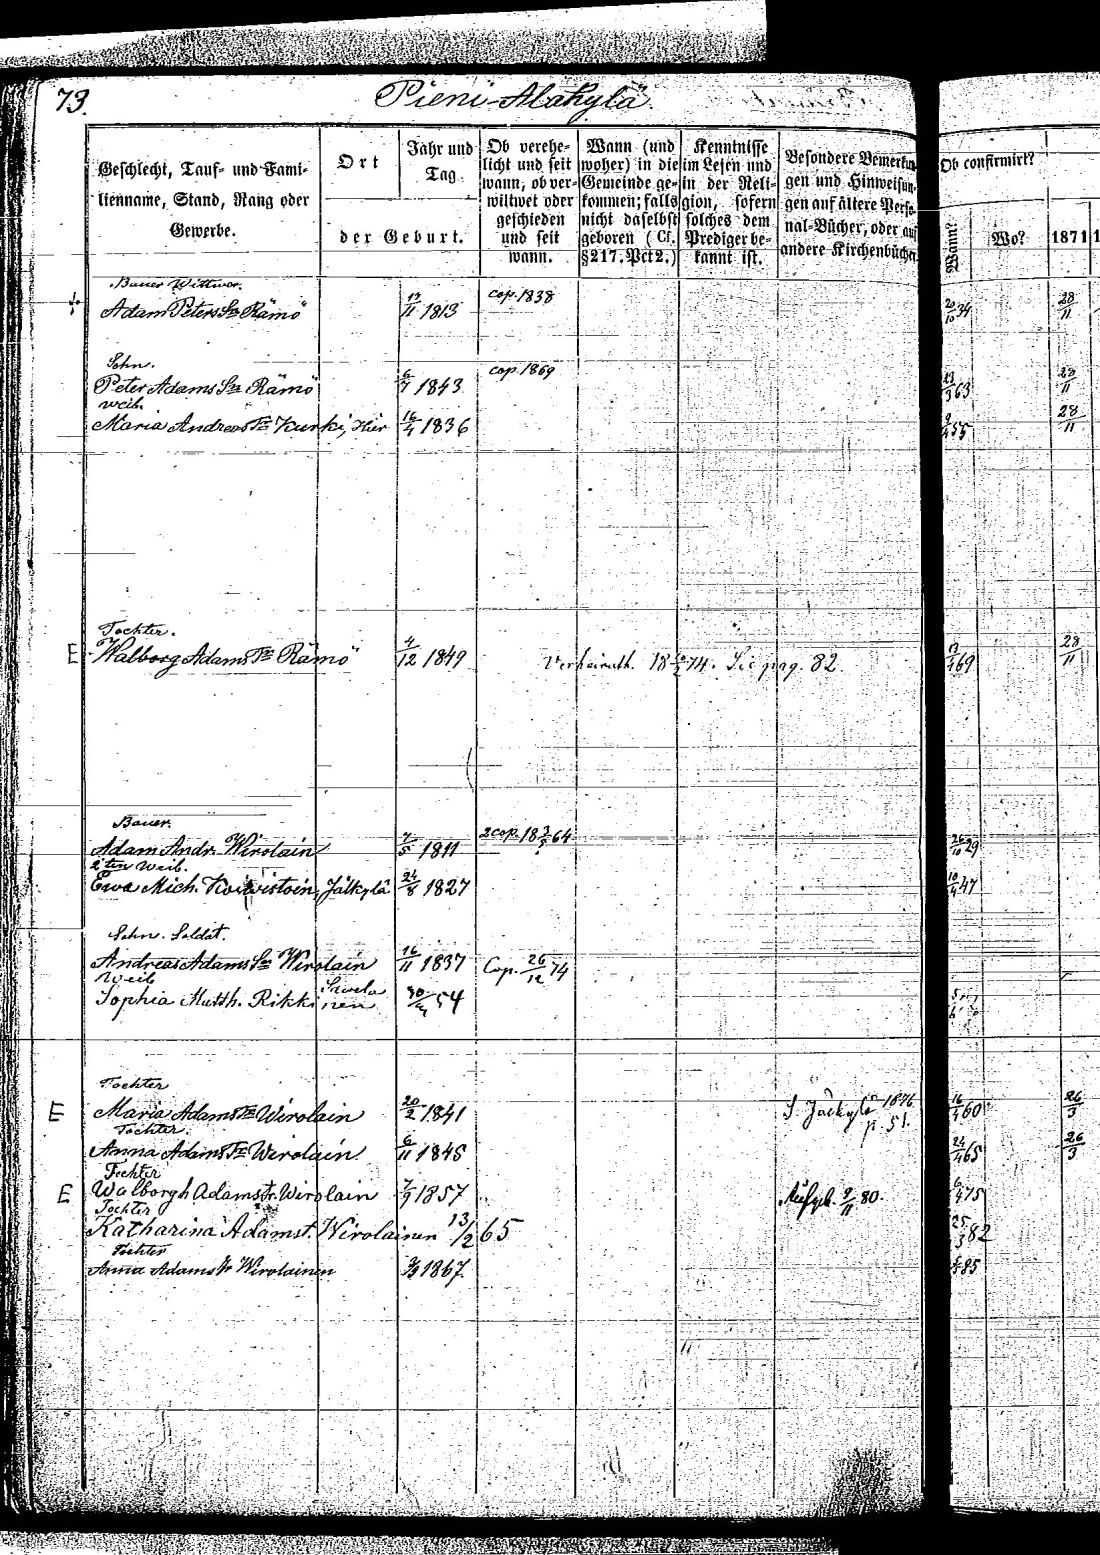 73.
Pieni-Alakylä
Geschlecht, Tauf- und Fami-
lienname, Stand, Rang oder
Gewerbe.
Ort
Jahr und
Tag
der Geburt.
Ob verehe-
licht und seit
wann, ob ver-
wittwet oder
geschieden
und seit
wann.
Wann (und
woher) in die
Gemeinde ge-
kommen; falls
nicht daselbst
geboren (Cf.
§217. Pct2.)
Kenntnisse
im Lesen und
in der Reli-
gion, sofern
solches dem
Prediger be-
kannt ist.
Besondere Bemerkun
gen und Hinweisun
gen auf ältere Perso
nal-Bücher, oder auf
andere Kirchenbücher
Ob confirmirt?
Wann?
Wo?
1871
Bauer Wittwer.
Adam Peters Sn Rämö 13/11 1813 cop. 1838 20/10 34 28/11
Sohn.
Peter Adams Sn Rämö 6/7 1843 cop. 1869 23/3 63 28/11
Weib.
Maria Andreas Tr Kurki, Hier 16/4 1836 9/4 55 28/11
Tochter.
E Walborg Adams Tr Rämö 4/12 1849 Verheirath. 18 /2 74. Sie pag. 82. 13/4 69 28/11
Bauer.
Adam Andr. Wirolain 7/5 1811 2 cop. 18 64 26/10 29
2ten Weib.
Ewa Mich. Koiwistoin, Jälkylä 24/8 1827 10/4 47
Sohn. Soldat.
Andreas Adams Sn Wirolain 16/11 1837 Cop. 26/12 74
Weib
Sophia Matth. Rikkinen 54
Tochter
E Maria Adams Tr Wirolain 20/2 1841 S. Jälkylä 1876 p. 51. 16/4 60 26/3
Tochter.
Anna Adams Tr Wirolain 6/11 1845 24/4 65 26/3
Tochter
E Walborgh Adams tr. Wirolain 7/9 1857 Aufgeb. 9/11 80. 6/4 75
Tochter
Katharina Adamst. Wirolainen 13/2 65 25/3 82
Tochter
Anna Adams tr Wirolainen 1867. 85